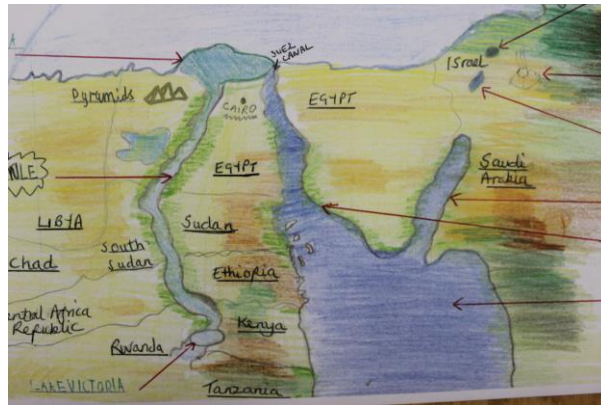 SUEZ
CANAL
Israel
Pyramids
CAIRO
EGYPT
EGYPT
Saudi
Arabia
NLE
LIBYA
Sudan
South
Sudan
Chad
Ethiopia
entral Africa
Republic
Kenya
Rwanda
LAKE VICTORIA
Tanzania